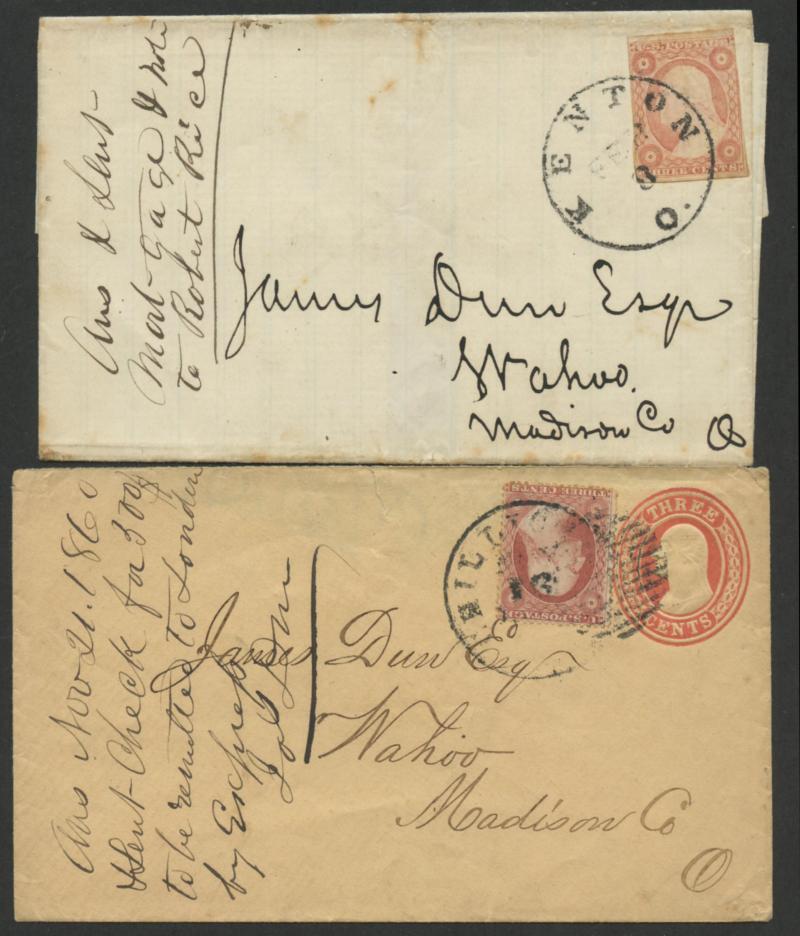 Ans & Sent
Mort-gage & note
to Robert Rice
U.S. POSTAGE
THREE CENTS
KENTON O.
8
James Dun Esqr
Wahoo.
Madison Co O
Ans Nov 21. 1860
& Sent-Check for 300$
to be remitted to London
by Express
THREE CENTS
U.S. POSTAGE
THREE
CENTS
16
James Dun Esq
Wahoo
Madison Co
O